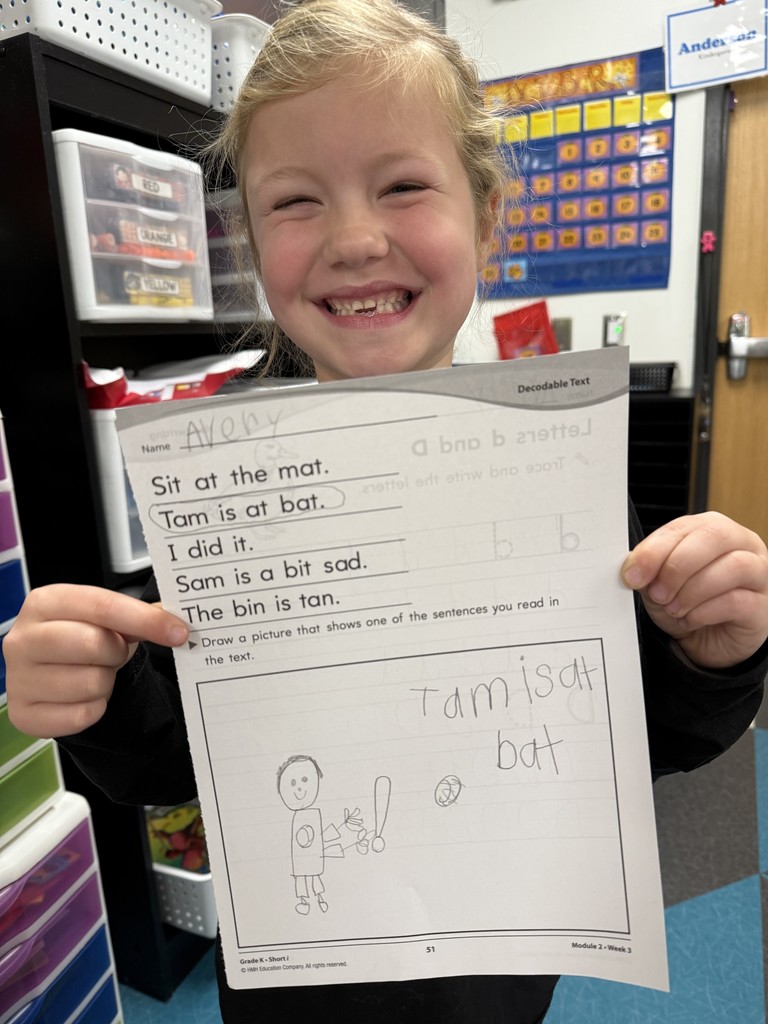 Anderson
Kindergarten
RED
ORANGE
YELLOW
Decodable Text
Name Avery
Sit at the mat.
Tam is at bat.
I did it.
Sam is a bit sad.
The bin is tan.
▶ Draw a picture that shows one of the sentences you read in
the text.
Tam is at
bat
Grade K • Short i
© HMH Education Company. All rights reserved.
51
Module 2 • Week 3
Letters d and D
Trace and write the letters.